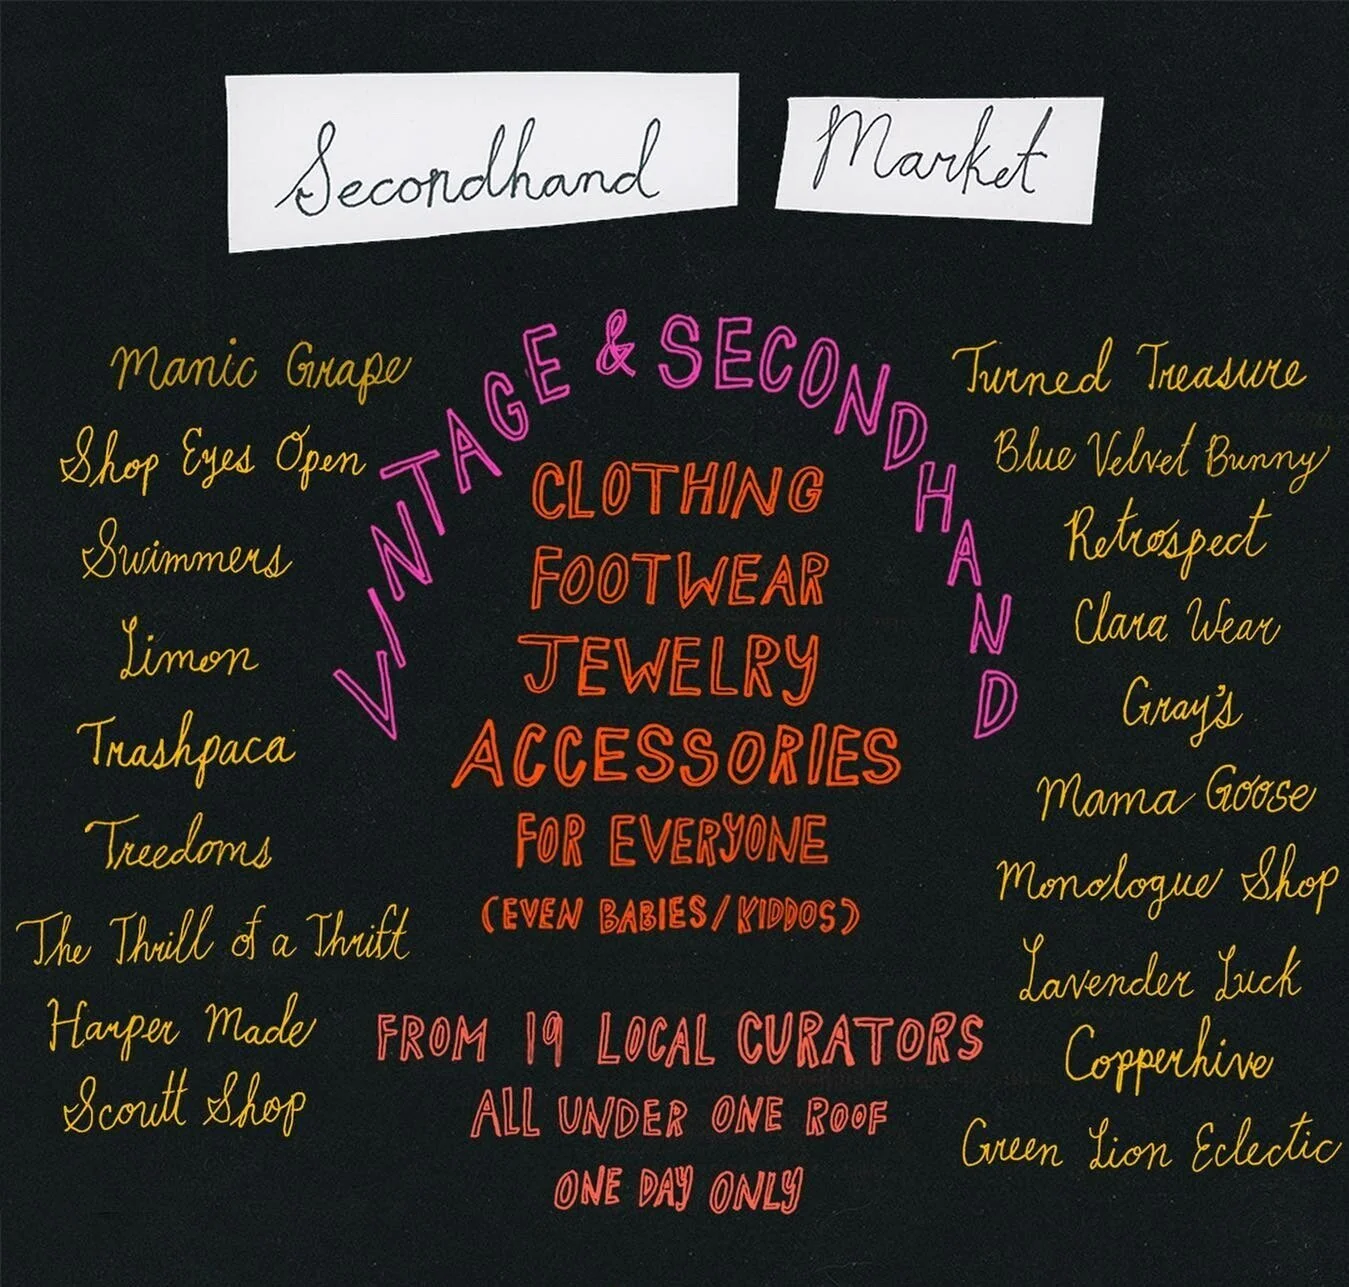 Secondhand Market
VINTAGE & SECONDHAND
CLOTHING
FOOTWEAR
JEWELRY
ACCESSORIES
FOR EVERYONE
(EVEN BABIES/KIDDOS)
FROM 19 LOCAL CURATORS
ALL UNDER ONE ROOF
ONE DAY ONLY
Manic Grape
Shop Eyes Open
Swimmers
Limon
Trashpaca
Treedoms
The Thrill of a Thrift
Harper Made
Scoutt Shop
Turned Treasure
Blue Velvet Bunny
Retrospect
Clara Wear
Gray's
Mama Goose
Monologue Shop
Lavender Luck
Copperhive
Green Lion Eclectic